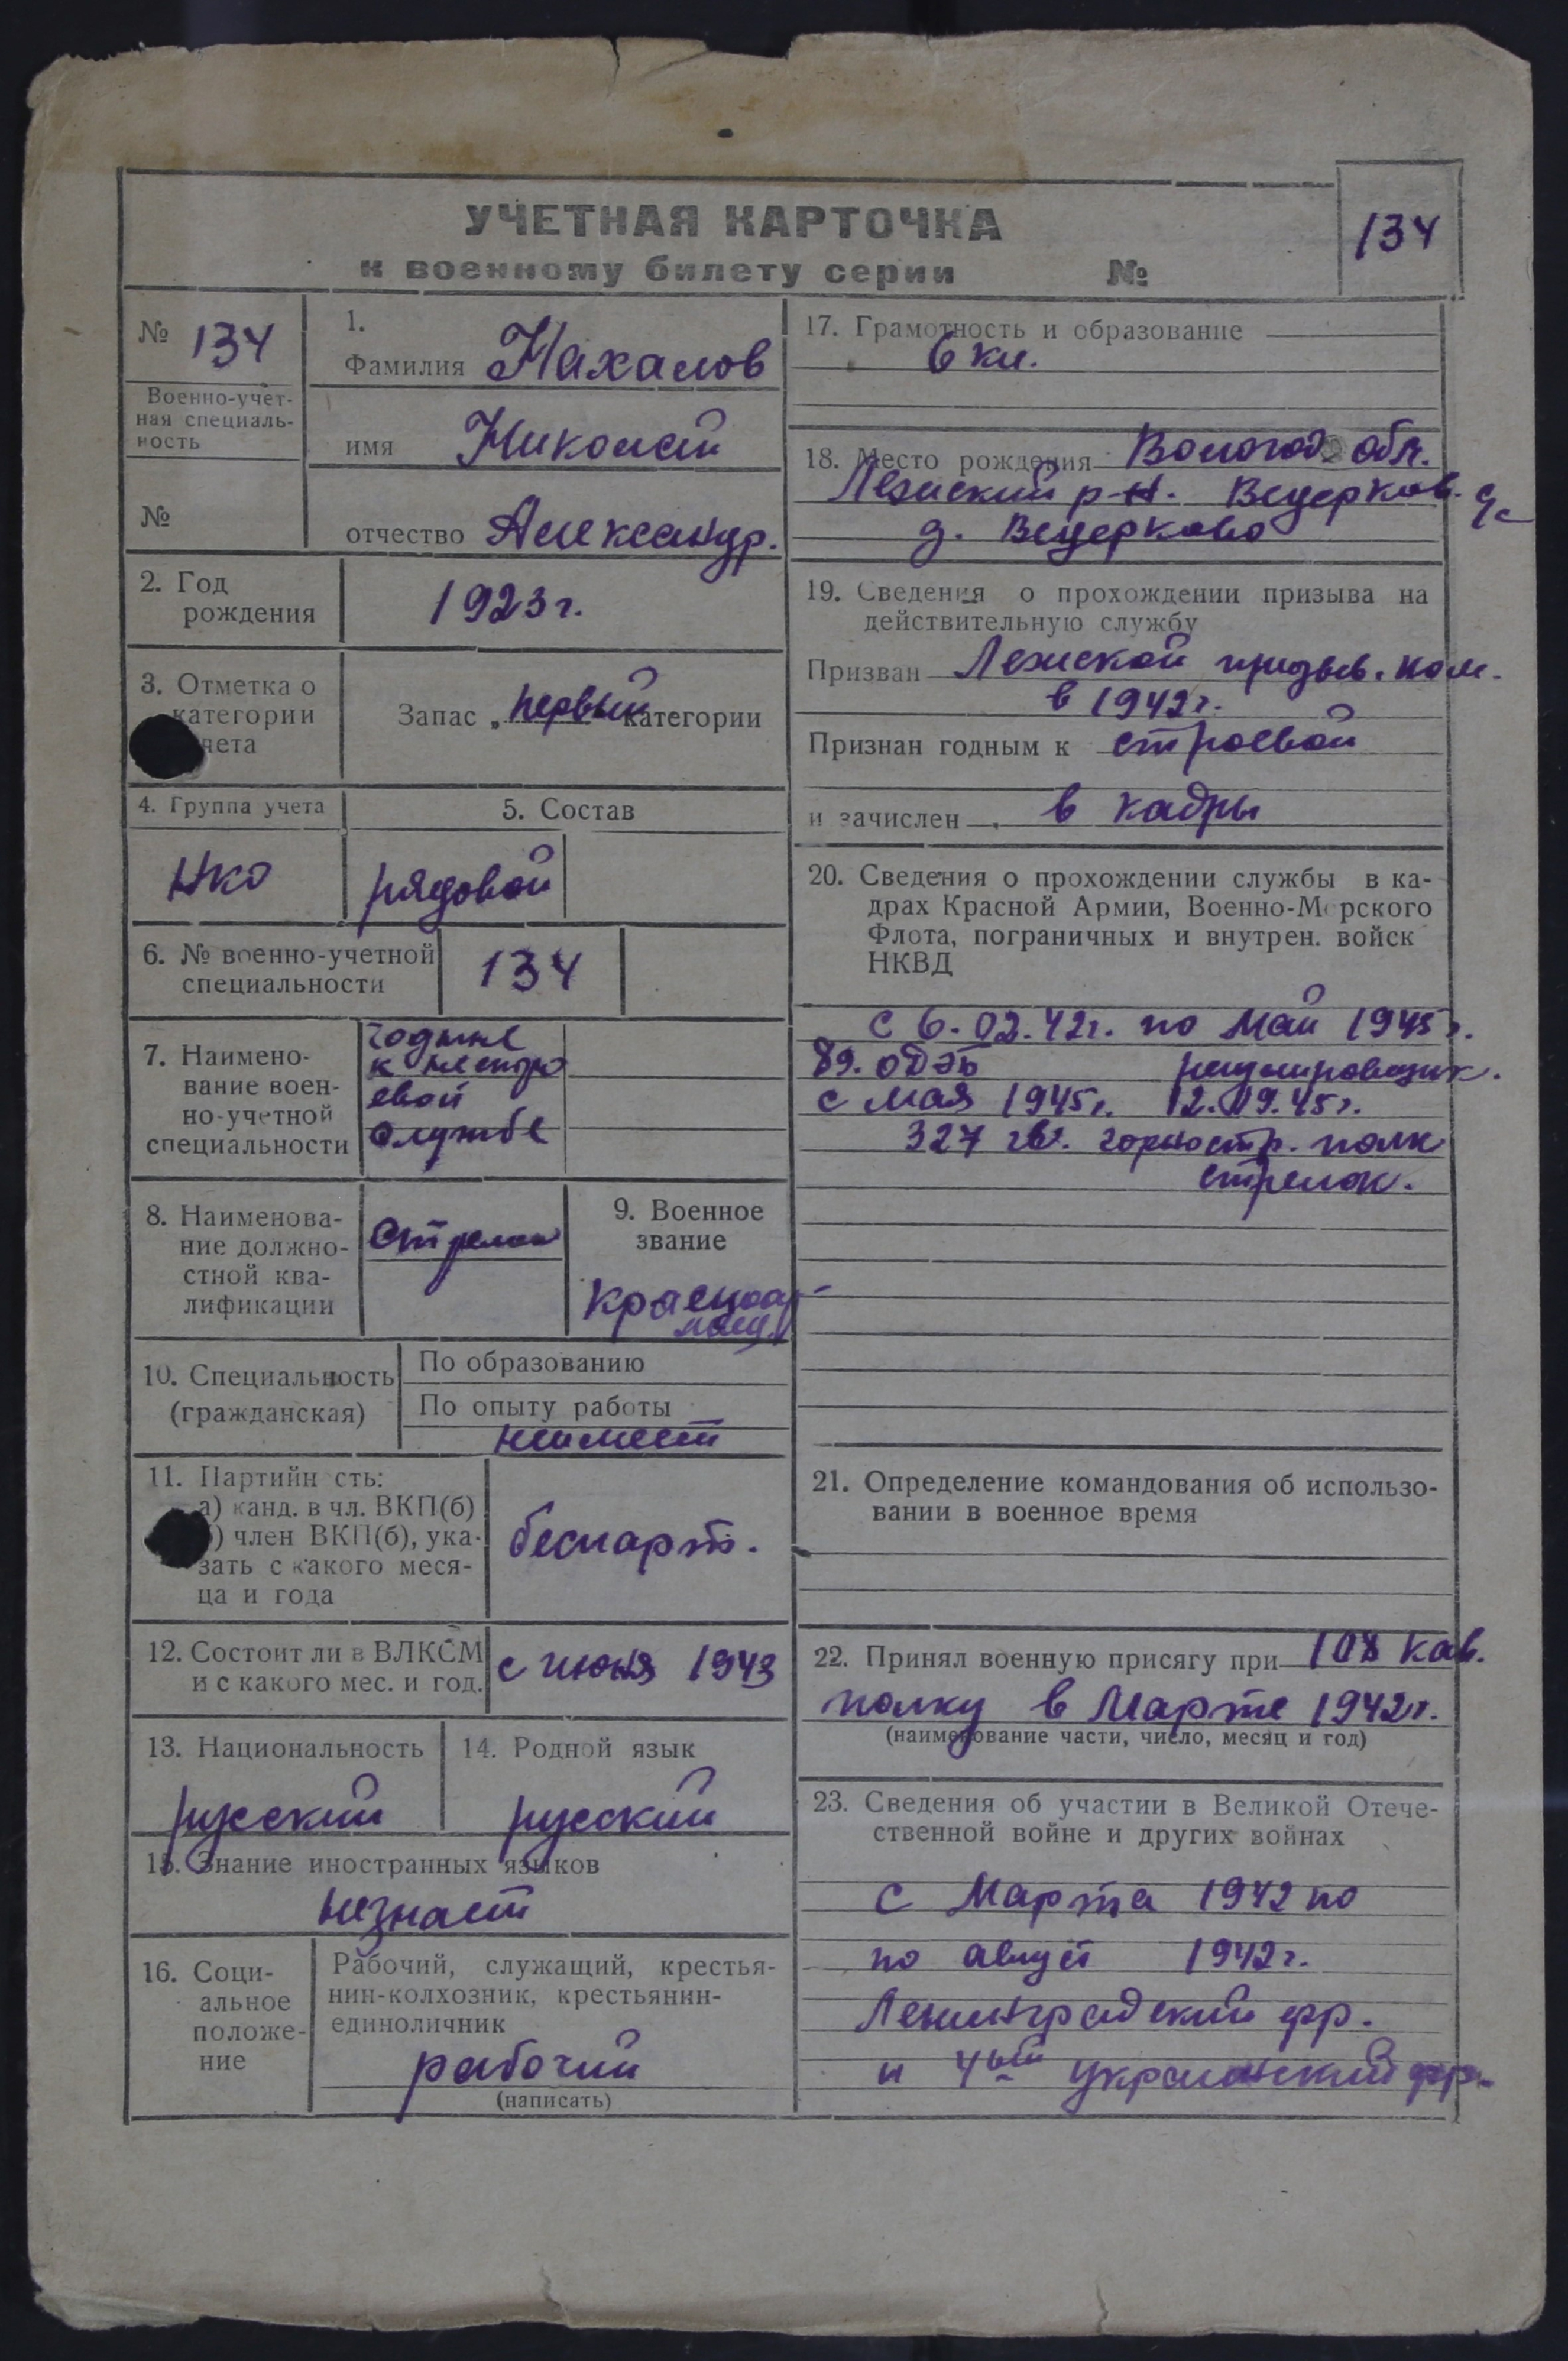 УЧЕТНАЯ КАРТОЧКА
к военному билету серии №
134
№ 134
Военно-учет-
ная специаль-
ность
№
1.
Фамилия Махалов
имя Николай
отчество Александр.
2. Год
рождения
1923 г.
3. Отметка о
категории
чета
Запас „первый категории
4. Группа учета
НКО
5. Состав
рядовой
6. № военно-учетной
специальности
134
7. Наимено-
вание воен-
но-учетной
специальности
годные
к нестро
евой
службе
8. Наименова-
ние должно-
стной ква-
лификации
стрелок
9. Военное
звание
красноар-
меец
10. Специальность
(гражданская)
По образованию
По опыту работы
неимеет
11. Партийн сть:
а) канд. в чл. ВКП(б)
) член ВКП(б), ука-
зать с какого меся-
ца и года
беспарт.
12. Состоит ли в ВЛКСМ
и с какого мес. и год.
с июня 1943
13. Национальность
русский
14. Родной язык
русский
15. Знание иностранных языков
незнает
16. Соци-
альное
положе-
ние
Рабочий, служащий, крестья-
нин-колхозник, крестьянин-
единоличник
рабочий
(написать)
17. Грамотность и образование
6 кл.
18. Место рождения Вологод. обл.
Лежский р-н. Вещерков. с/с
д. Вещерково
19. Сведения о прохождении призыва на
действительную службу
Призван Лежской призыв. ком.
в 1942 г.
Признан годным к строевой
и зачислен в кадры
20. Сведения о прохождении службы в ка-
драх Красной Армии, Военно-Морского
Флота, пограничных и внутрен. войск
НКВД
с 6.02.42г. по май 1945 г.
89. ОДЭБ регулировщик.
с мая 1945 г. 12.09.45 г.
327 гв. горностр. полк
стрелок.
21. Определение командования об использо-
вании в военное время
22. Принял военную присягу при 108 кав.
полку в Марте 1942 г.
(наименование части, число, месяц и год)
23. Сведения об участии в Великой Отече-
ственной войне и других войнах
с Марта 1942 по
по август 1942 г.
Ленинградский фр.
и 4ый украинский фр.